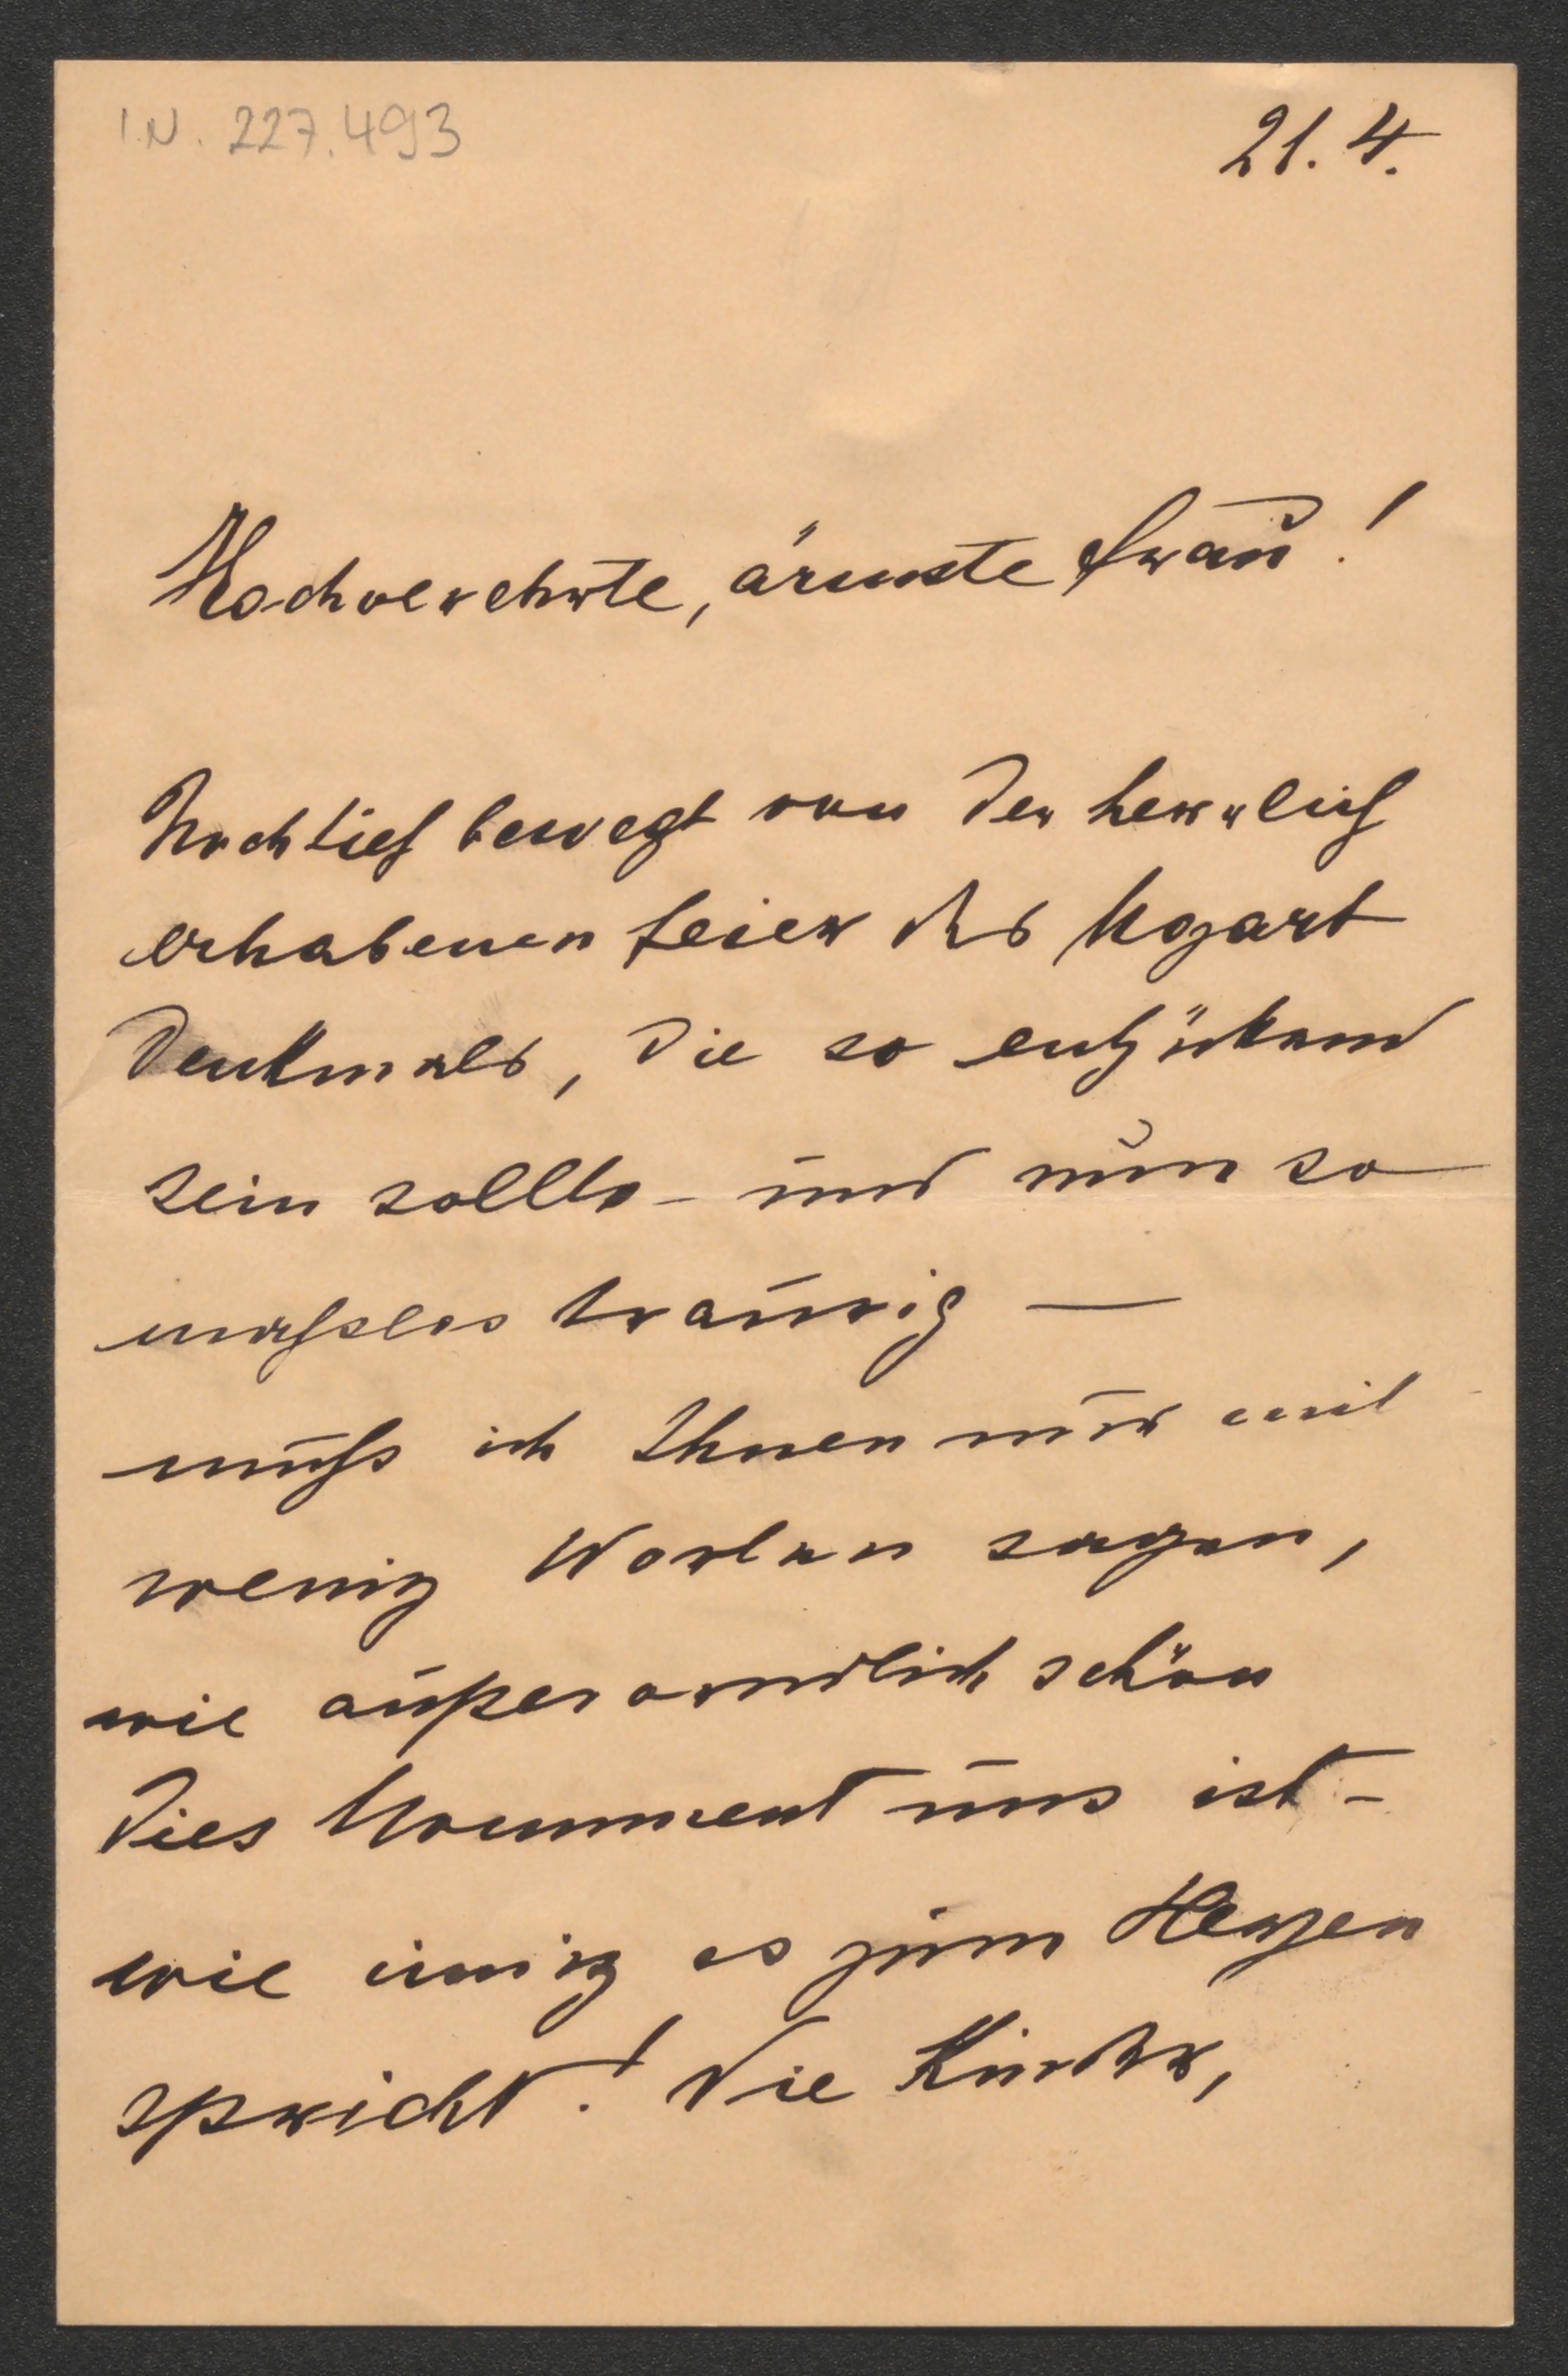 I.N. 227.493
21. 4.
Hochverehrte, ärmste Frau!
Noch tief bewegt von der herrlich
erhabenen Feier des Mozart
Denkmals, die so entzückend
sein sollte - und nun so
maßlos traurig —
muß ich Ihnen nur mit
wenig Worten sagen,
wie außerordentlich schön
dies Monument uns ist -
wie innig es zum Herzen
spricht! Die Kinder,